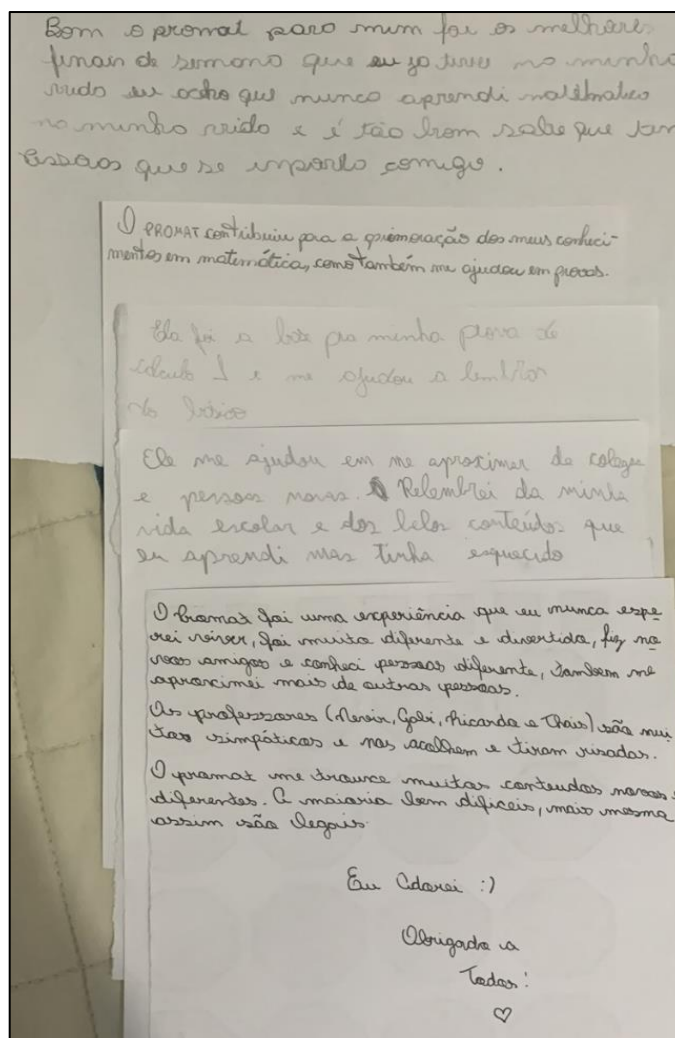 Bom o promat para mim foi os melhores
finais de semana que eu ja tive na minha
vida eu acho que nunca aprendi matematica
na minha vida e é tão bom sabe que tem
pessoas que se importa comigo.
O PROMAT contribuiu para a aprimoração dos meus conheci-
mentos em matemática, como também me ajudou em provas.
Ela foi a base pra minha prova de
calculo 1 e me ajudou a lembrar
do básico
Ele me ajudou em me aproximar de colegas
e pessoas novas. Relembrei da minha
vida escolar e dos belos conteúdos que
eu aprendi mas tinha esquecido
O Promat foi uma experiência que eu nunca espe
rei viver, foi muito diferente e divertida, fiz no
vos amigos e conheci pessoas diferente, tambem me
aproximei mais de outras pessoas.
Os professores (Gabi, Ricardo e Thais) são mui
tos simpáticos e nos acolhem e tiram risadas.
O promat me trouxe muitos conteudos novos e
diferentes. A maioria bem dificeis, mais mesmo
assim são legais
Eu Adorei :)
Obrigada a
Todos!
♡